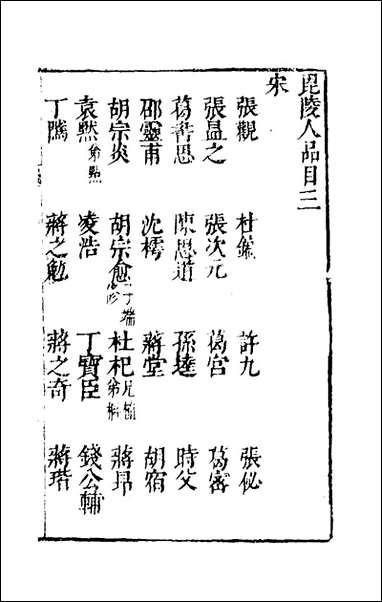 毗陵人品目三
宋
張觀　杜鎬　許九　張秘
張昷之　張次元　葛宮　葛密
葛書思　陳思道　孫逵　時父
邵靈甫　沈樗　蔣堂　胡宿
胡宗炎　胡宗愈子端　杜杞兄弟　蔣昂
袁默弟點　凌浩　丁寶臣　錢公輔
丁騭　蔣之勉　蔣之奇　蔣瑎